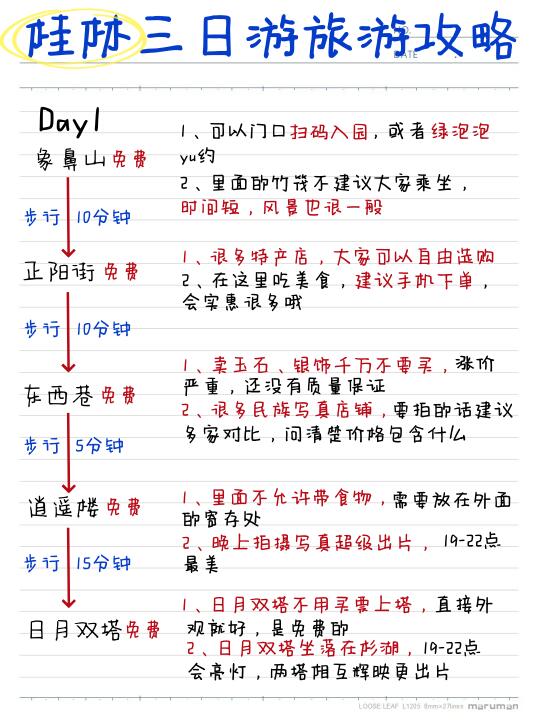 桂林三日游旅游攻略
DATE
Day1
象鼻山免费
1、可以门口扫码入园，或者绿泡泡
yu约
2、里面的竹筏不建议大家乘坐，
时间短，风景也很一般
步行 10分钟
正阳街免费
1、很多特产店，大家可以自由选购
2、在这里吃美食，建议手机下单，
会实惠很多哦
步行 10分钟
东西巷免费
1、卖玉石、银饰千万不要买，涨价
严重，还没有质量保证
2、很多民族写真店铺，要拍的话建议
多家对比，问清楚价格包含什么
步行 5分钟
逍遥楼免费
1、里面不允许带食物，需要放在外面
的寄存处
2、晚上拍摄写真超级出片，19-22点
最美
步行 15分钟
日月双塔免费
1、日月双塔不用买票上塔，直接外
观就好，是免费的
2、日月双塔坐落在杉湖，19-22点
会亮灯，两塔相互辉映更出片
LOOSE LEAF L1205 8mm×27lines maruman